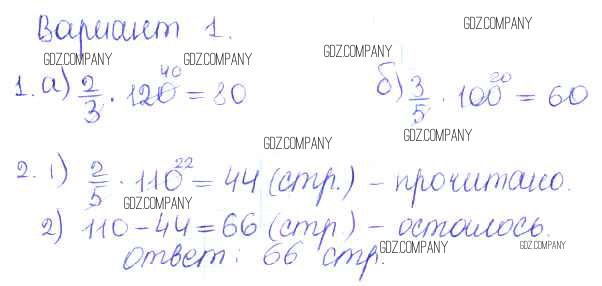 Вариант 1.
GDZ.COMPANY
GDZ.COMPANY GDZ.COMPANY GDZ.COMPANY
1. а) 2/3 · 120 40 = 80 б) 3/5 · 100 20 = 60
GDZ.COMPANY
GDZ.COMPANY
2. 1) 2/5 · 110 22 = 44 (стр.) – прочитано.
GDZ.COMPANY
2) 110 – 44 = 66 (стр.) – осталось.
GDZ.COMPANY GDZ.COMPANY
ответ: 66 стр.